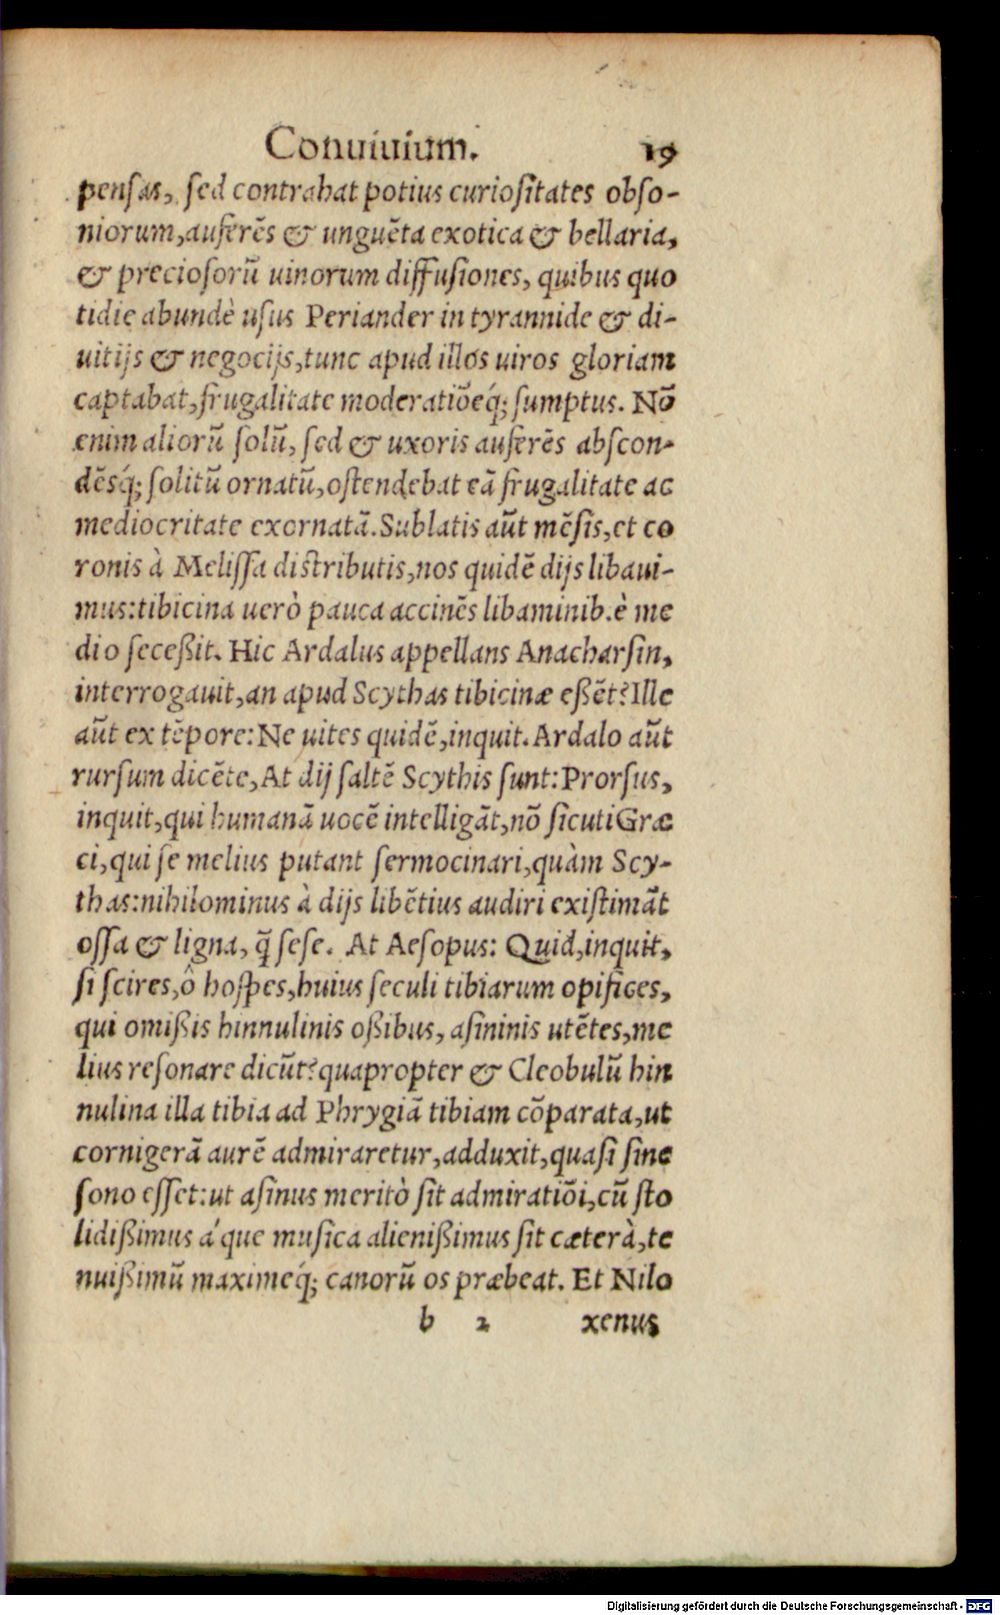 Conuiuium. 19
pensas, sed contrahat potius curiositates obso-
niorum, auferēs & unguēta exotica & bellaria,
& preciosorū uinorum diffusiones, quibus quo
tidie abundè usus Periander in tyrannide & di-
uitijs & negocijs, tunc apud illos uiros gloriam
captabat, frugalitate moderatiōeq́; sumptus. Nō
enim aliorū solū, sed & uxoris auferēs abscon-
dēsq́; solitū ornatū, ostendebat eā frugalitate ac
mediocritate exornatā. Sublatis aūt mēsis, et co
ronis à Melissa distributis, nos quidē dijs libaui-
mus: tibicina uerò pauca accinēs libaminib. è me
dio seceßit. Hic Ardalus appellans Anacharsin,
interrogauit, an apud Scythas tibicinæ eßēt? Ille
aūt ex tēpore: Ne uites quidē, inquit. Ardalo aūt
rursum dicēte, At dij saltē Scythis sunt: Prorsus,
inquit, qui humanā uocē intelligāt, nō sicuti Græ
ci, qui se melius putant sermocinari, quàm Scy-
thas: nihilominus à dijs libētius audiri existimāt
ossa & ligna, q̄ sese. At Aesopus: Quid, inquit,
si scires, ô hospes, huius seculi tibiarum opifices,
qui omißis hinnulinis oßibus, asininis utētes, me
lius resonare dicūt? quapropter & Cleobulū hin
nulina illa tibia ad Phrygiā tibiam cōparata, ut
cornigerā aurē admiraretur, adduxit, quasi sine
sono esset: ut asinus meritò sit admiratiōi, cū sto
lidißimus á que musica alienißimus sit cæterà, te
nuißimū maximeq́; canorū os præbeat. Et Nilo
b 2 xenus
Digitalisierung gefördert durch die Deutsche Forschungsgemeinschaft - DFG